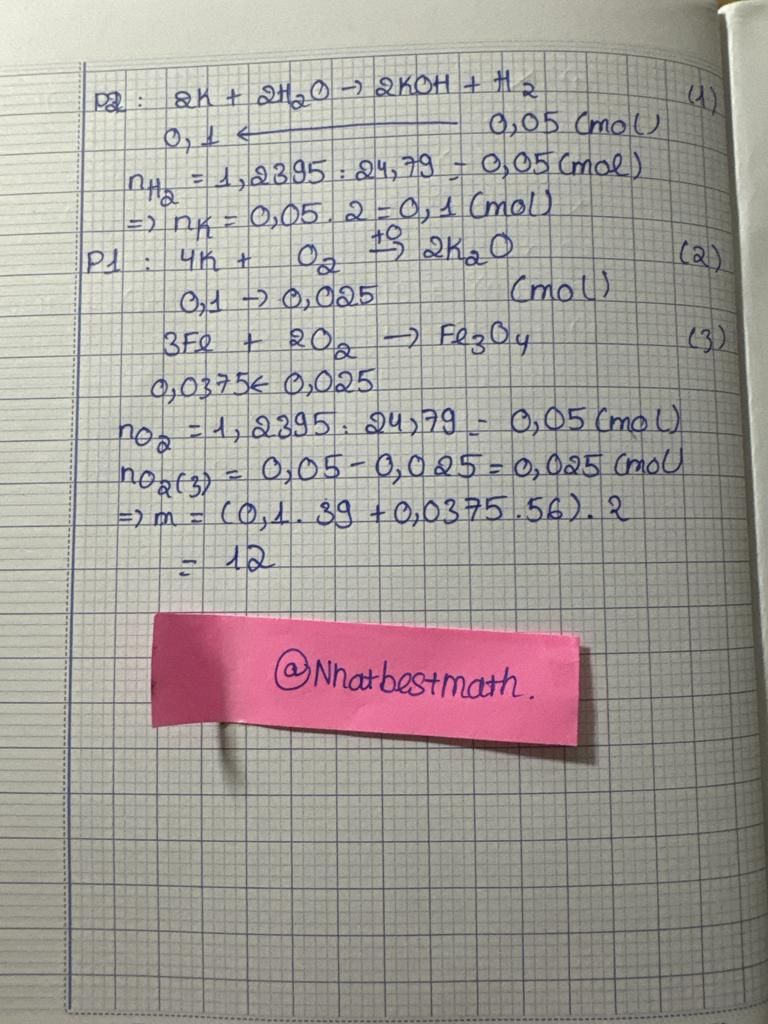 P2 : 2K + 2H2O → 2KOH + H2 (1)
0,1 ← 0,05 (mol)
nH2 = 1,2395 : 24,79 = 0,05 (mol)
=> nK = 0,05 . 2 = 0,1 (mol)
P1 : 4K + O2 +O→ 2K2O (2)
0,1 → 0,025 (mol)
3Fe + 2O2 → Fe3O4 (3)
0,0375 ← 0,025
nO2 = 1,2395 : 24,79 = 0,05 (mol)
nO2(3) = 0,05 - 0,025 = 0,025 (mol
=> m = (0,1 . 39 + 0,0375 . 56) . 2
= 12
@Nhatbestmath.